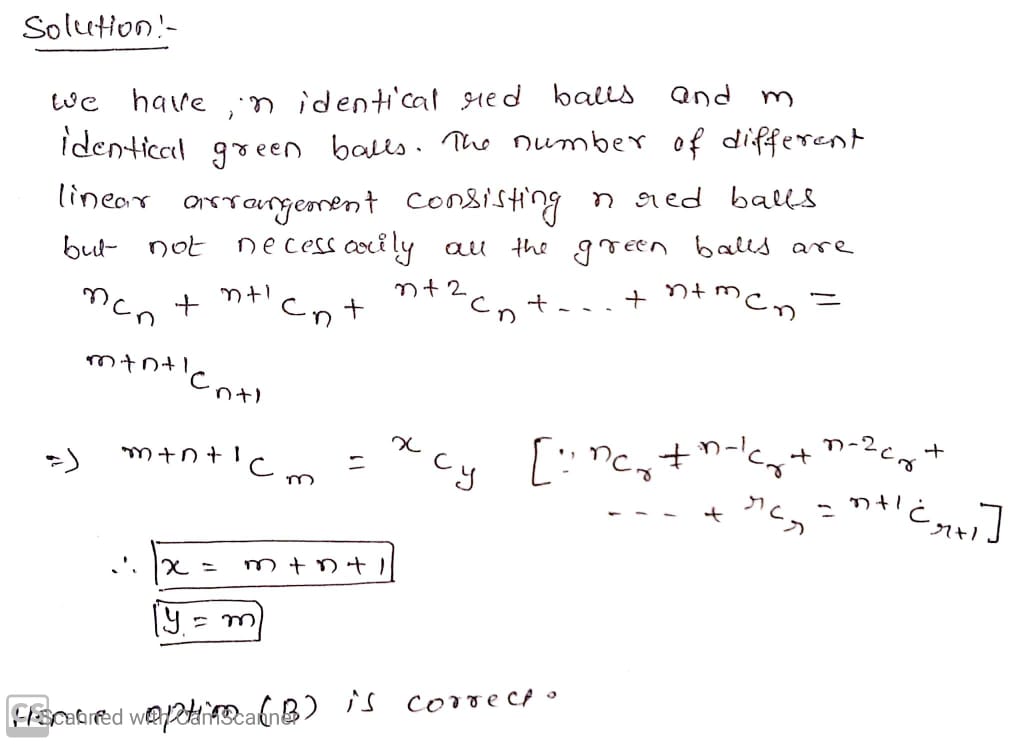 Solution:-
we have, n identical red balls and m
identical green balls. The number of different
linear arrangement consisting n red balls
but not necessarily all the green balls are
ⁿCₙ + ⁿ⁺¹Cₙ + ⁿ⁺²Cₙ + - - . + ⁿ⁺ᵐCₙ =
ᵐ⁺ⁿ⁺¹Cₙ₊₁
=> ᵐ⁺ⁿ⁺¹Cₘ = ˣC_y [∵ ⁿCᵣ + ⁿ⁻¹Cᵣ + ⁿ⁻²Cᵣ +
- - - + ʳCᵣ = ⁿ⁺¹Cᵣ₊₁]
∴ x = m + n + 1
y = m
Hence option (B) is correct.
CS Scanned with CamScanner